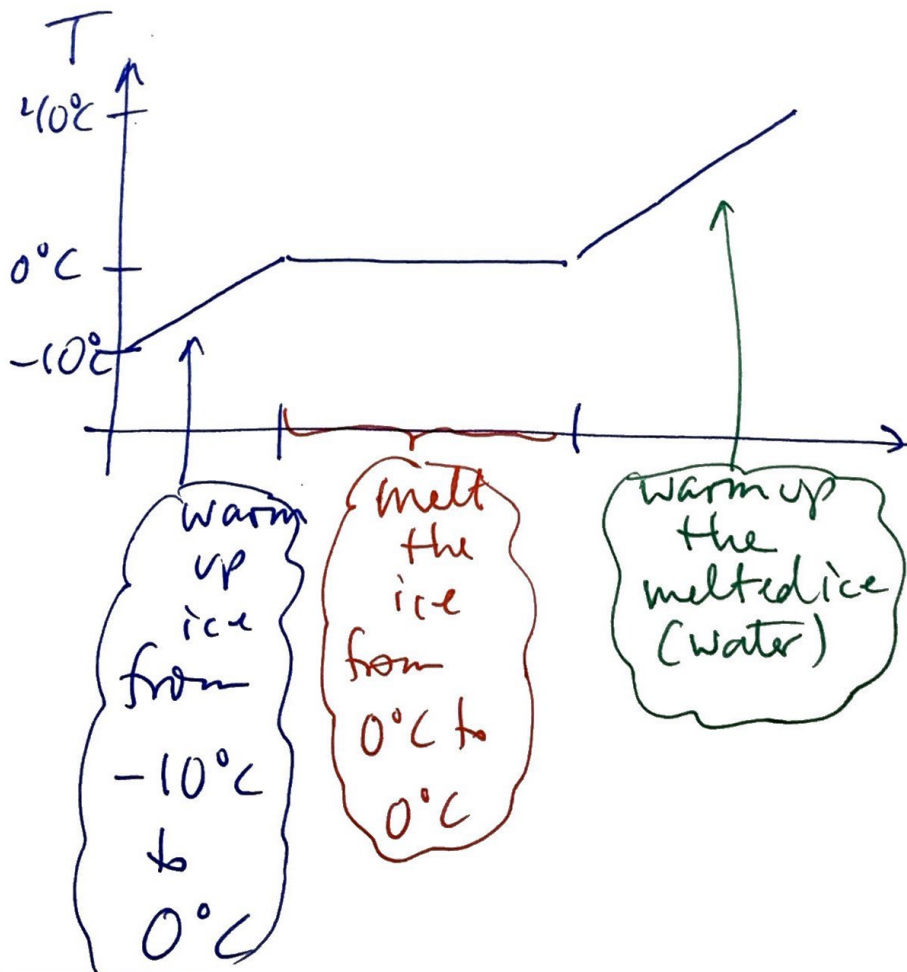 T
40°C
0°C
-10°C
warm
up
ice
from
-10°C
to
0°C
melt
the
ice
from
0°C to
0°C
warm up
the
melted ice
(water)